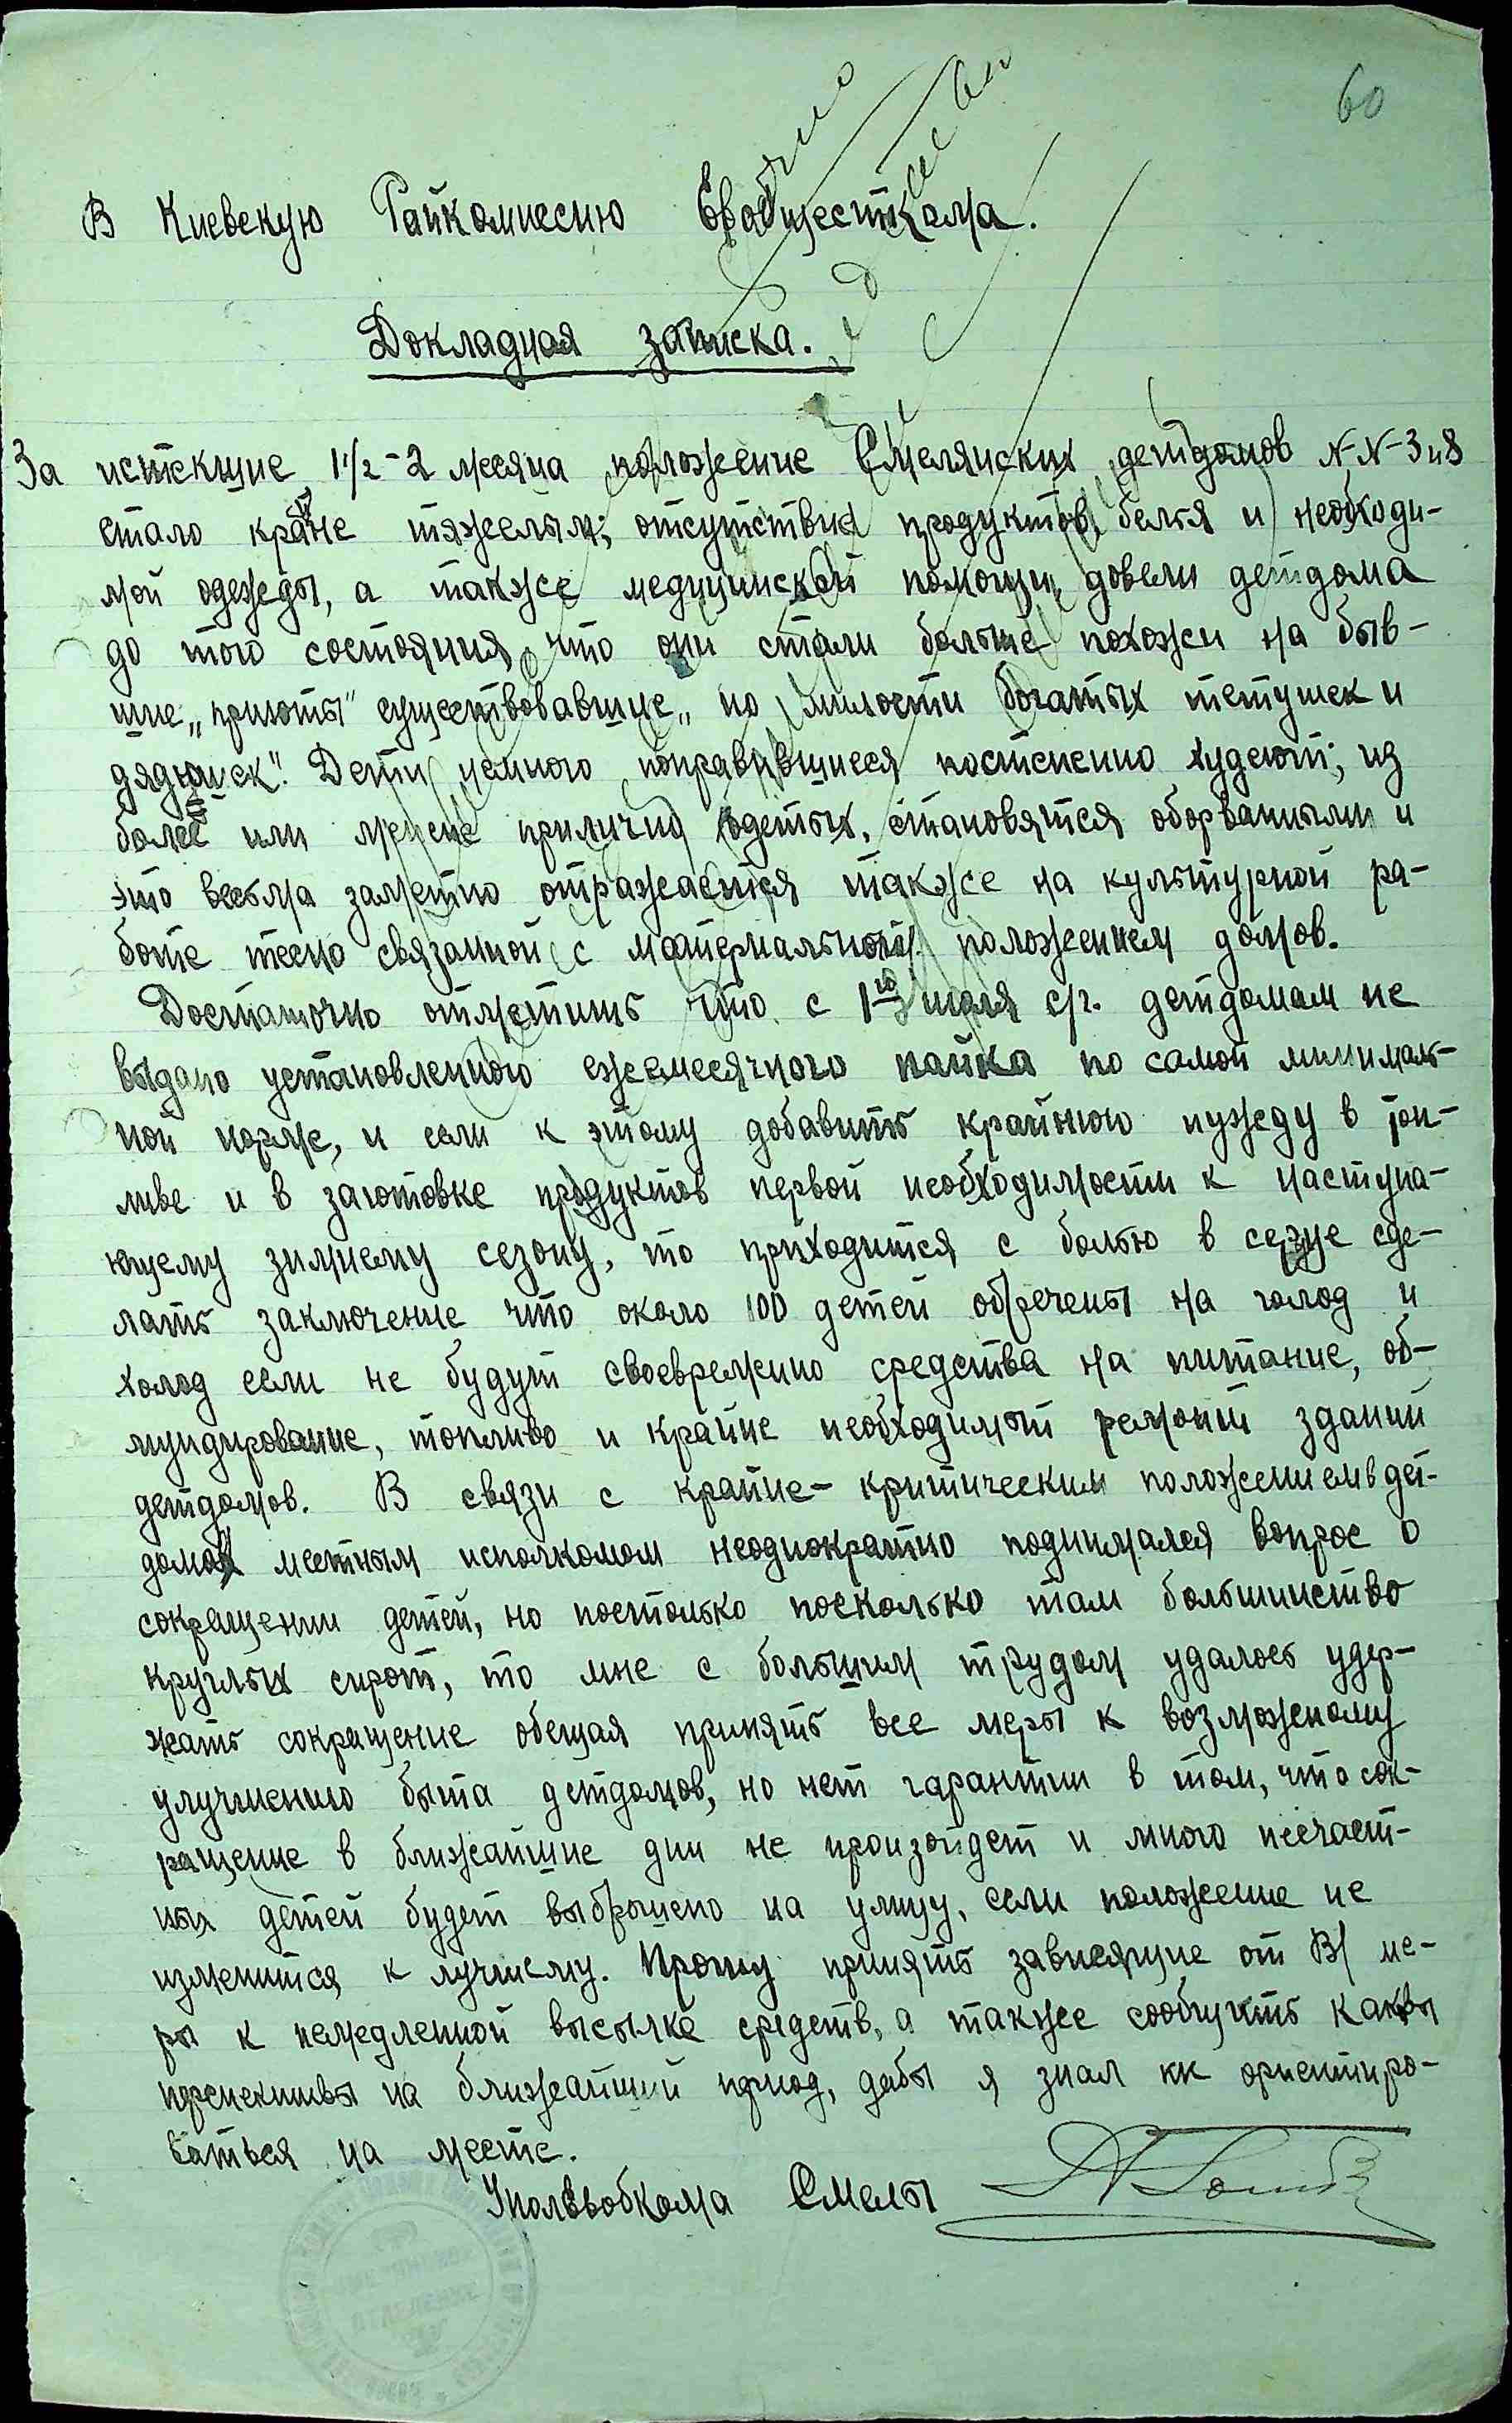 60
В Киевскую Райкомиссию Евобщесткома.
Докладная записка.
За истекшие 1½-2 месяца положение Смелянских детдомов N-N-3 и 8
стало крайне тяжелым; отсутствие продуктов, белья и необходи-
мой одежды, а также медицинской помощи, довели детдома
до того состояния, что они стали больше похожи на быв-
шие „приюты" существовавшие „по милости богатых тетушек и
дядюшек". Дети немного поправившиеся постепенно худеют; из
более или менее прилично одетых, становятся оборванными и
это весьма заметно отражается также на культурной ра-
боте тесно связанной с материальным положением домов.
Достаточно отметить что с 1го июля с/г. детдомам не
выдано установленного ежемесячного пайка по самой минималь-
ной норме, и если к этому добавить крайнюю нужду в топ-
ливе и в заготовке продуктов первой необходимости к наступа-
ющему зимнему сезону, то приходится с болью в сердце сде-
лать заключение что около 100 детей обречены на голод и
холод если не будут своевремено средства на питание, об-
мундирование, топливо и крайне необходимый ремонт зданий
детдомов. В связи с крайне-критическим положением в дет-
домах местным исполкомом неоднократно поднимался вопрос о
сокращении детей, но постолько посколько там большинство
круглых сирот, то мне с большим трудом удалось удер-
жать сокращение обещая принять все меры к возможному
улучшению быта детдомов, но нет гарантии в том, что сок-
ращение в ближайшие дни не произойдет и много несчаст-
ных детей будет выброшено на улицу, если положение не
изменится к лучшему. Прошу принять зависящие от В/ ме-
ры к немедленной высылке средств, а также сообщить каковы
перспективы на ближайший период, дабы я знал как ориентиро-
ваться на месте.
Смелы